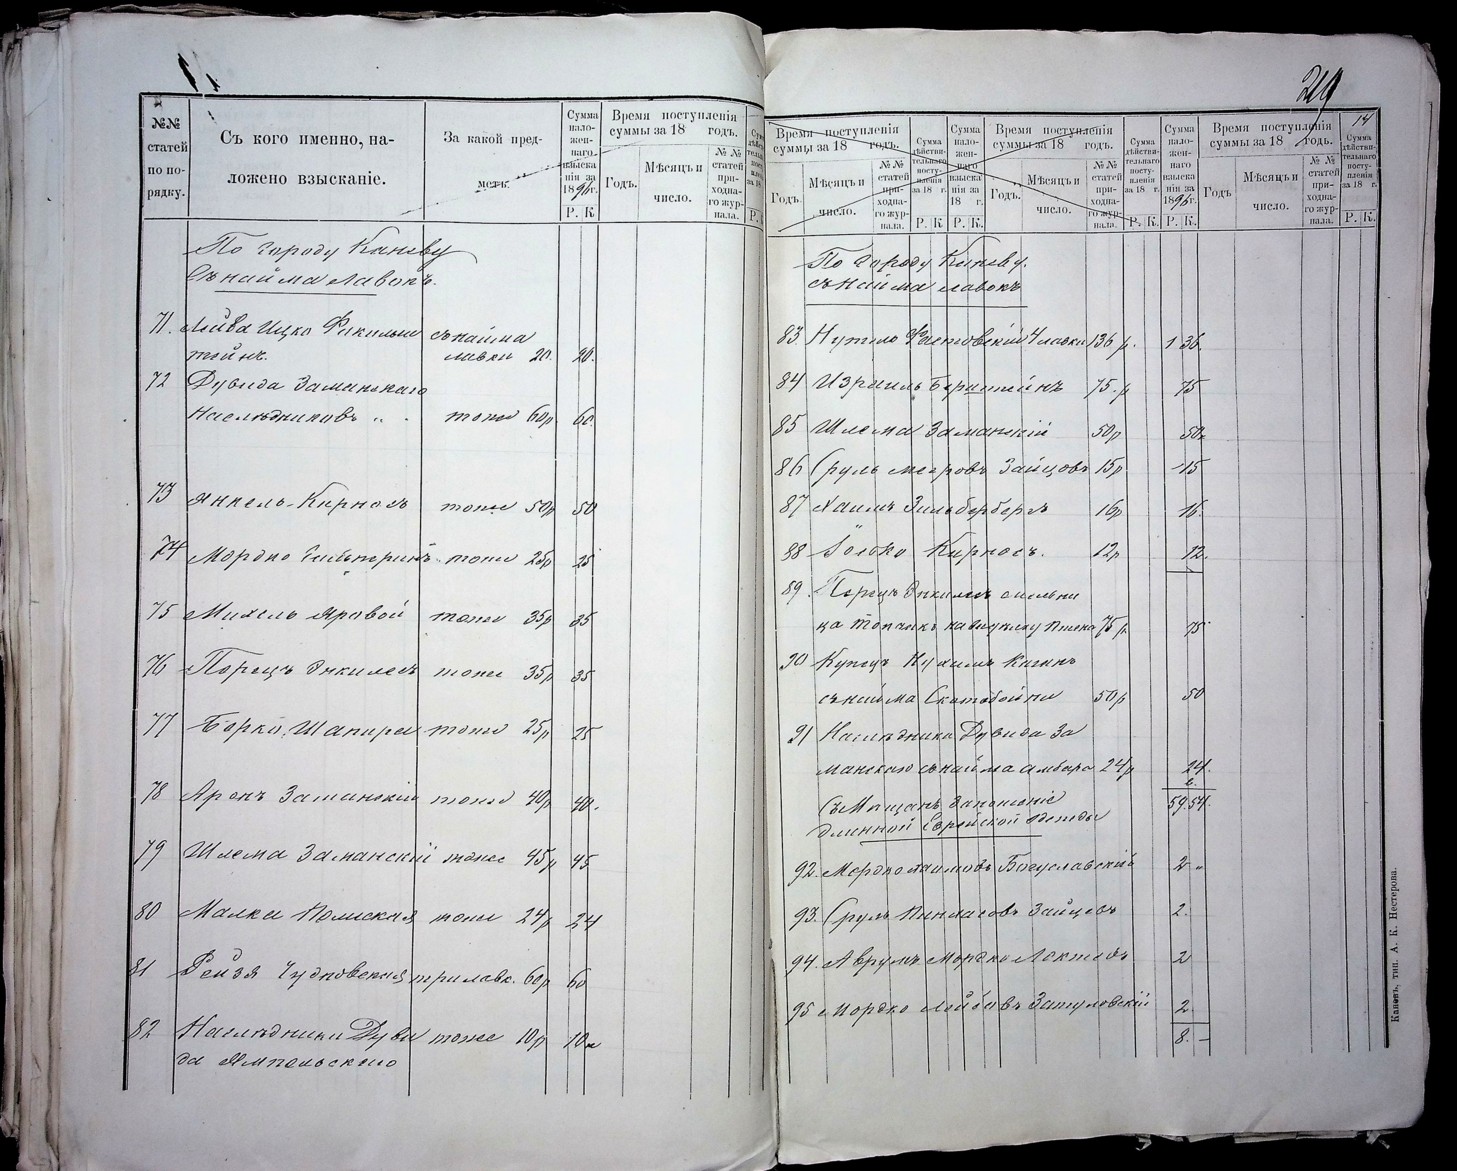 №№ статей по порядку.
Съ кого именно, на-
ложено взысканіе.
За какой пред-
метъ.
Сумма нало-жен-наго взыска нія за 1896 г.
Р. К
Время поступленія
суммы за 18 годъ.
Годъ.
Мѣсяцъ и
число.
№ № статей при-ходна-го жур-нала.
По городу Каневу
Съ найма лавокъ.
71. Лейба Ицко Финкильш съ найма
тейнъ. лавки 20. 20.
72 Дувида Заманскаго
Наслѣдниковъ тоже 60р 60.
73 Янкель Кирносъ тоже 50р 50
74 Мордко тоже 25р 25
75 Михель Яровой тоже 35р 35
76 тоже 35р 35
77 Борко Шапиро тоже 25р 25
78 Аронъ Заманскій тоже 40р 40.
79 Шлема Заманскій тоже 45р 45
80 Малка тоже 24р 24
81 Рейзя Чудновская три лавк. 60р 60
82 Наслѣдники Дуви тоже 10р 10
да Ямпольскаго
219
14
Время поступленія
суммы за 18 годъ.
Годъ.
Мѣсяцъ и
число.
№№ статей при-ходна-го жур-нала.
Сумма дѣйстви-тельнаго посту-пленія за 18 г.
Р. К
Сумма нало-жен-наго взыска нія за 18 г.
Р. К.
Время поступленія
суммы за 18 годъ.
Годъ.
Мѣсяцъ и
число.
№№ статей при-ходна-го жур-нала.
Сумма дѣйстви-тельнаго посту-пленія за 18 г.
Р. К.
Сумма нало-жен-наго взыска нія за 1896 г.
Р. К.
Время поступленія
суммы за 18 годъ.
Годъ.
Мѣсяцъ и
число.
№ № статей при-ходна-го жур-нала.
Сумма дѣйстви-тельнаго посту-пленія за 18 г.
Р. К.
По городу Каневу.
съ найма лавокъ
83. Фастовскій 4 лавки 136 р. 136.
84 Израиль Берштейнъ 75 р 75
85 Шлема Заманскій 50р 50
86 Сруль Мееровъ Зайцовъ 15р 15
87 Хаимъ Зильбербергъ 16р 16.
88 Кирносъ. 12р 12.
89.
75 р. 75
90 Купецъ Нухимъ Каганъ
съ найма Скотобойни 50р 50
91 Наслѣдники Дувида За
манскаго съ найма амбара 24р 24.
Съ Мѣщанъ за ношеніе 5954.
длинной Еврейской одежды
92. Мордко Хаимовъ Богуславскій 2 „
93. Сруль Пинхасовъ Зайцевъ 2.
94. Аврумъ Мордко 2
95 Мордко Лейбовъ Затуловскій 2
8. –
Каневъ, тип. А. К. Нестерова.